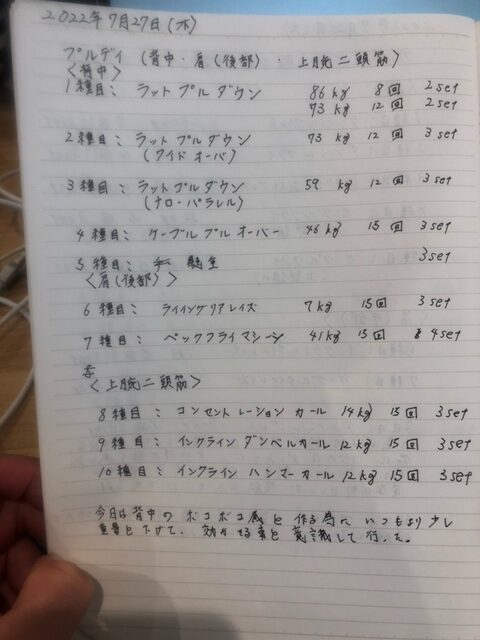 2022年7月27日(木)
プルデイ (背中・肩(後部)・上腕二頭筋)
<背中>
1種目: ラットプルダウン 86kg 8回 2set
73kg 12回 2set
2種目: ラットプルダウン 73kg 12回 3set
(ワイドオーバ)
3種目: ラットプルダウン 59kg 12回 3set
(ナローパラレル)
4種目: ケーブルプルオーバー 46kg 15回 3set
5種目: 懸垂 3set
<肩(後部)>
6種目: ライイングリアレイズ 7kg 15回 3set
7種目: ペックフライマシーン 41kg 15回 4set
<上腕二頭筋>
8種目: コンセントレーションカール 14kg 15回 3set
9種目: インクラインダンベルカール 12kg 15回 3set
10種目: インクラインハンマーカール 12kg 15回 3set
今日は背中のボコボコ感を作る為にいつもより少し
重量を下げて、効かせる事を意識して行った。